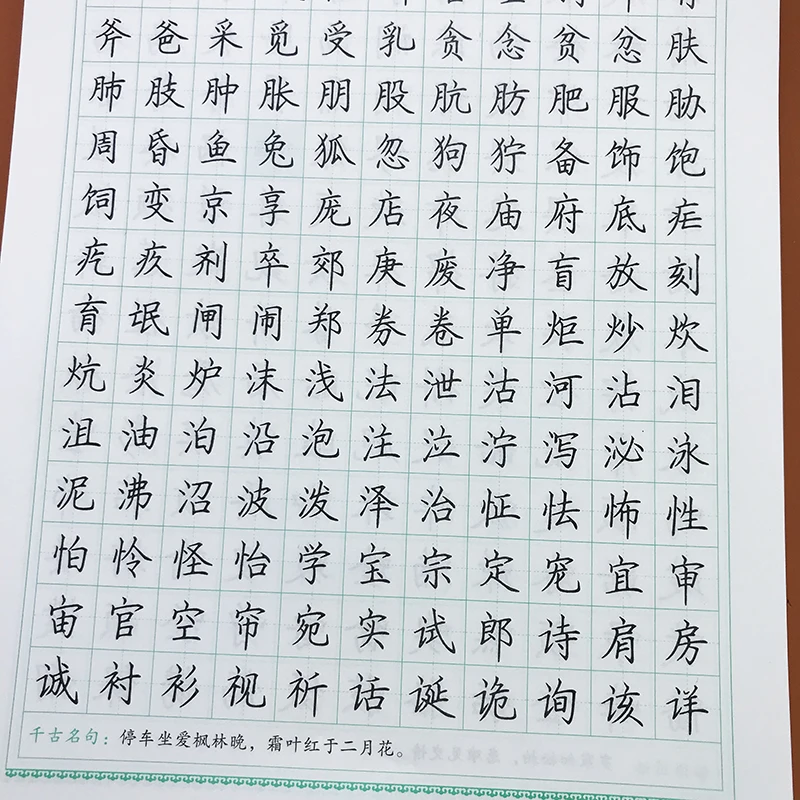 斧爸采觅受乳贪念贫忿肤
肺肢肿胀朋股肮肪肥服胁
周昏鱼兔狐忽狗狞备饰饱
饲变京享庞店夜庙府底疟
疙疚剂卒郊庚废净盲放刻
育氓闸闹郑券卷单炬炒炊
炕炎炉沫浅法泄沽河沾泪
沮油泊沿泡注泣泞泻泌泳
泥沸沼波泼泽治怔怯怖性
怕怜怪怡学宝宗定宠宜审
宙官空帘宛实试郎诗肩房
诚衬衫视祈话诞诡询该详
千古名句：停车坐爱枫林晚，霜叶红于二月花。